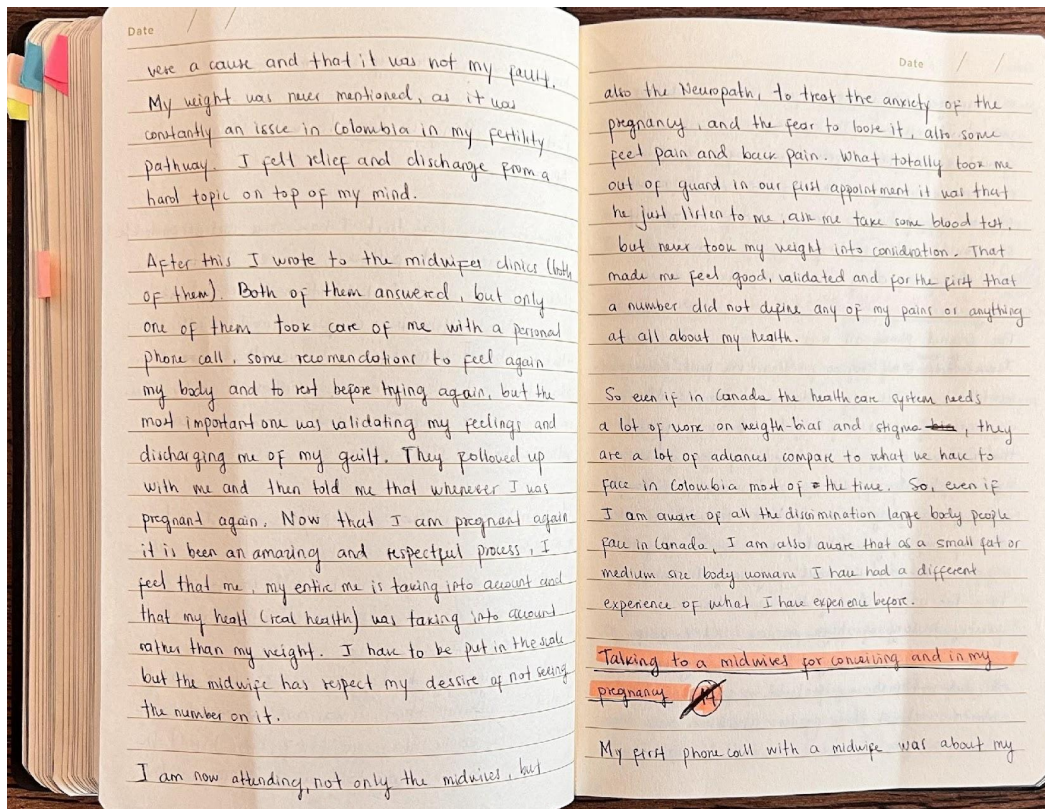 Date / /
were a cause and that it was not my fault.
My weight was never mentioned, as it was
constantly an issue in Colombia in my fertility
pathway. I felt relief and discharge from a
hard topic on top of my mind.
After this I wrote to the midwifes clinics (both
of them). Both of them answered, but only
one of them took care of me with a personal
phone call, some recomendations to feel again
my body and to rest before trying again, but the
most important one was validating my feelings and
discharging me of my guilt. They followed up
with me and then told me that whenever I was
pregnant again. Now that I am pregnant again
it is been an amazing and respectful process, I
feel that me, my entire me is taking into account and
that my healt (real health) was taking into account
rather than my weight. I have to be put in the scale
but the midwife has respect my dessire of not seeing
the number on it.
I am now attending, not only the midwives, but
Date / /
also the Neuropath, to treat the anxiety of the
pregnancy, and the fear to loose it, also some
feet pain and back pain. What totally took me
out of guard in our first appointment it was that
he just listen to me, ask me take some blood test,
but never took my weight into considration. That
made me feel good, validated and for the first that
a number did not define any of my pains or anything
at all about my health.
So even if in Canada the health care system needs
a lot of work on weigth-bias and stigma, they
are a lot of advances compare to what we have to
face in Colombia most of the time. So, even if
I am aware of all the discrimination large body people
face in Canada, I am also aware that as a small fat or
medium size body womam I have had a different
experience of what I have experience before.
Talking to a midwives for conceiving and in my
pregnancy 14
My first phone call with a midwife was about my